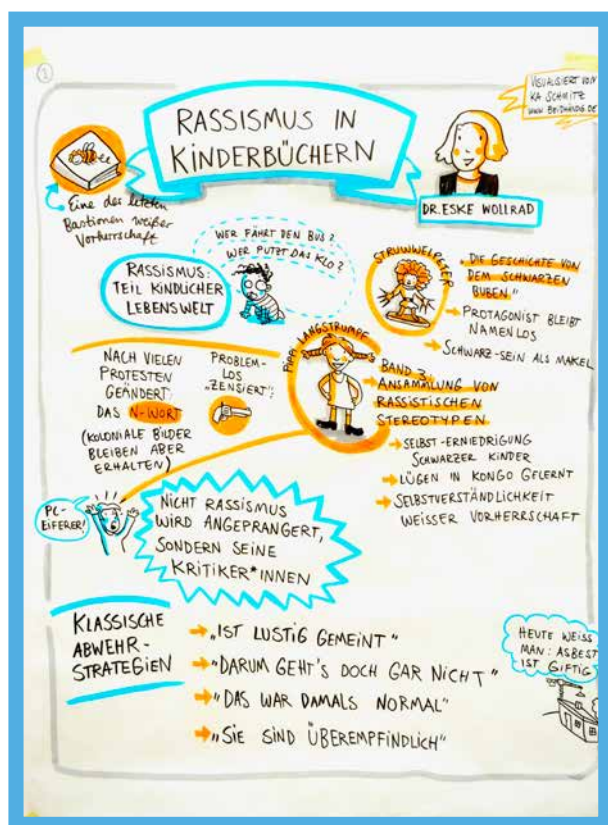 1
VISUALISIERT VON
KA SCHMITZ
WWW.BEIDHÄNDIG.DE
RASSISMUS IN
KINDERBÜCHERN
DR. ESKE WOLLRAD
Eine der letzten
Bastionen weißer
Vorherrschaft
WER FÄHRT DEN BUS?
WER PUTZT DAS KLO?
RASSISMUS:
TEIL KINDLICHER
LEBENSWELT
STRUWWELPETER
"DIE GESCHICHTE VON
DEM SCHWARZEN
BUBEN"
→ PROTAGONIST BLEIBT
NAMENLOS
→ SCHWARZ-SEIN ALS MAKEL
NACH VIELEN
PROTESTEN
GEÄNDERT:
DAS N-WORT
(KOLONIALE BILDER
BLEIBEN ABER
ERHALTEN)
PROBLEM-
LOS
"ZENSIERT":
PIPPI LANGSTRUMPF
BAND 3:
→ ANSAMMLUNG VON
RASSISTISCHEN
STEREOTYPEN
→ SELBST-ERNIEDRIGUNG
SCHWARZER KINDER
→ LÜGEN IN KONGO GELERNT
→ SELBSTVERSTÄNDLICHKEIT
WEISSER VORHERRSCHAFT
PC-
EIFERER!
NICHT RASSISMUS
WIRD ANGEPRANGERT,
SONDERN SEINE
KRITIKER*INNEN
KLASSISCHE
ABWEHR-
STRATEGIEN
→ "IST LUSTIG GEMEINT"
→ "DARUM GEHT'S DOCH GAR NICHT"
→ "DAS WAR DAMALS NORMAL"
→ "SIE SIND ÜBEREMPFINDLICH"
HEUTE WEISS
MAN: ASBEST
IST GIFTIG